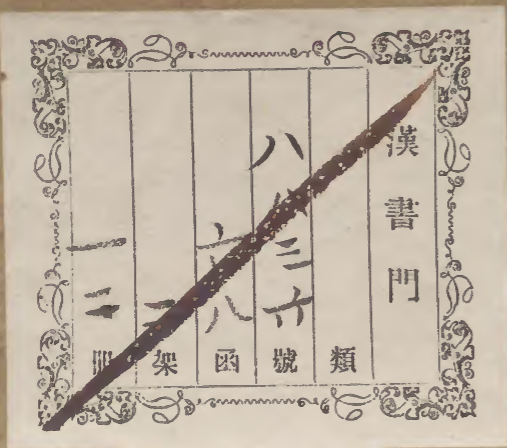 漢書門
類
八三六號
六八函
二架
一二冊